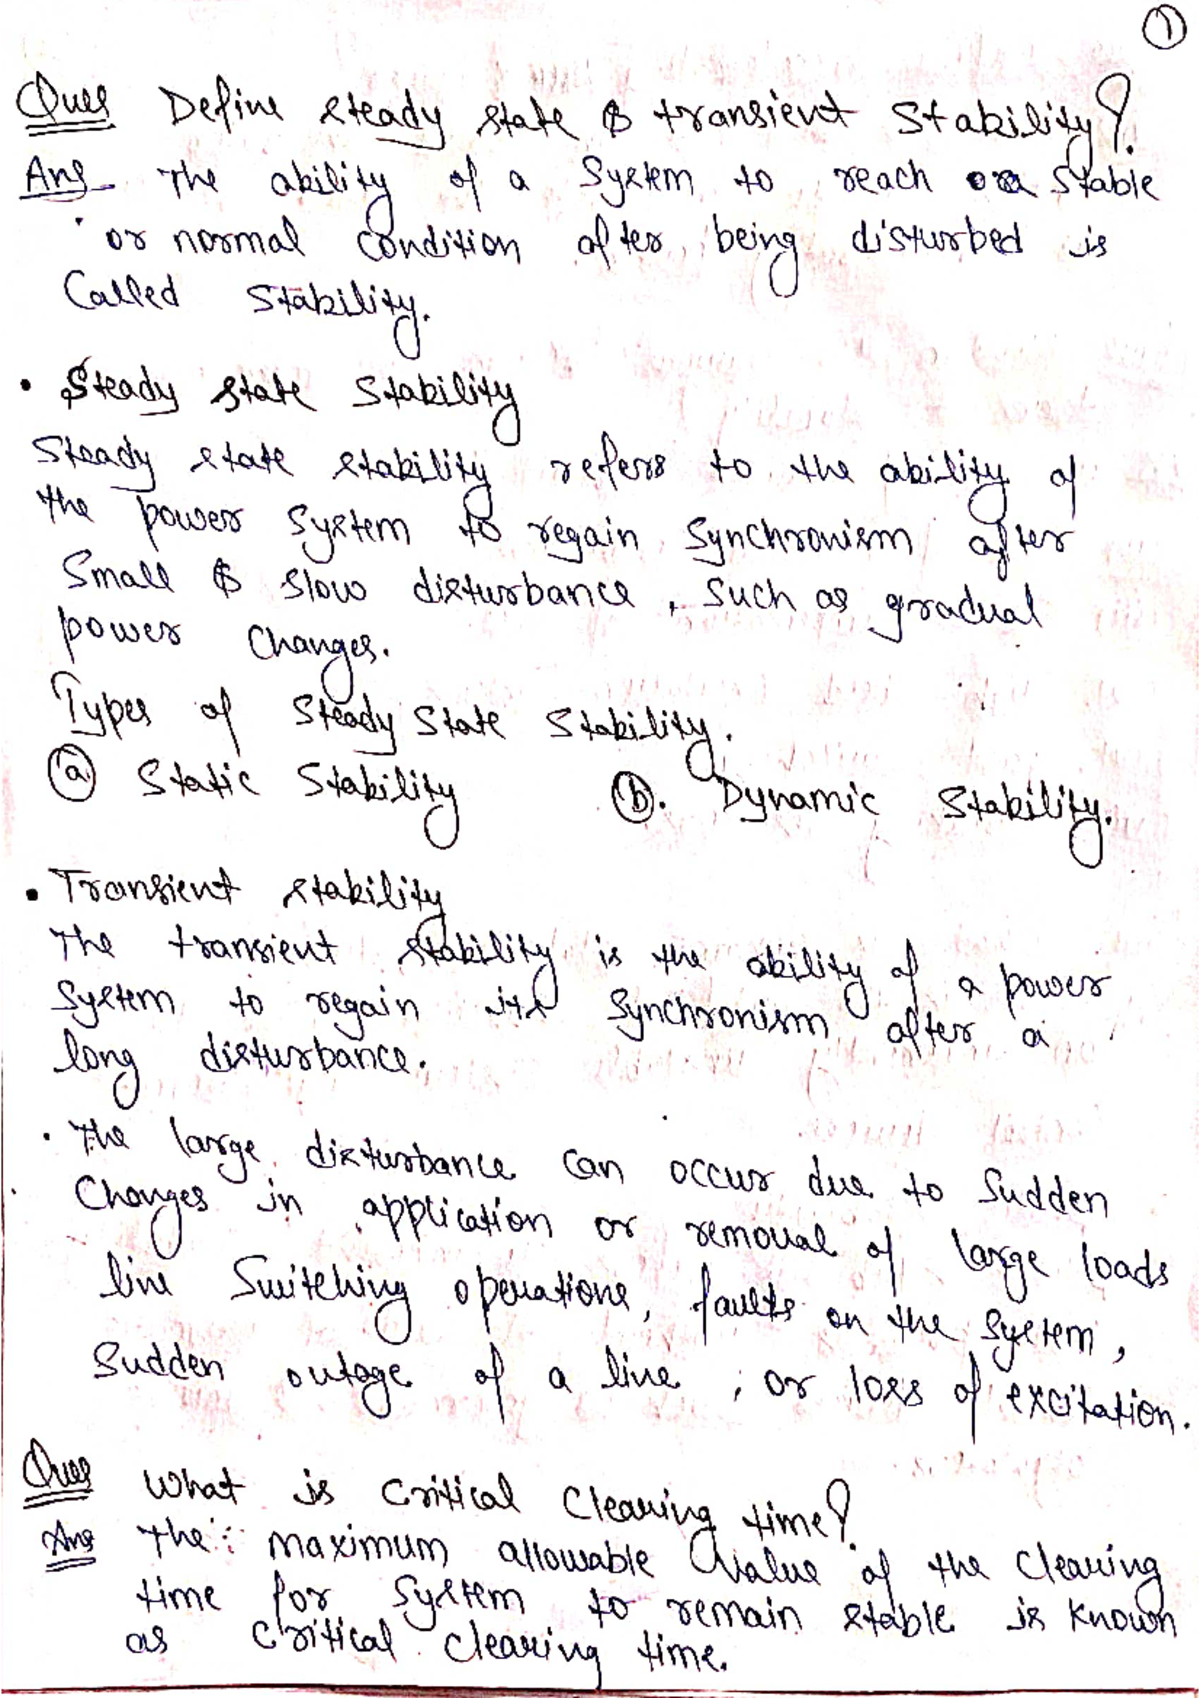 1
Ques Define steady state & transient Stability?
Ans The ability of a System to reach a Stable
or normal condition after being disturbed is
Called Stability.
• Steady state Stability
Steady state stability refers to the ability of
the power system to regain Synchronism after
Small & slow disturbance, Such as gradual
power Changes.
Types of Steady State Stability.
(a) Static Stability (b). Dynamic Stability.
• Transient stability
The transient stability is the ability of a power
System to regain its Synchronism after a
long disturbance.
• The large disturbance can occur due to Sudden
Changes in application or removal of large loads
line Switching operations, faults on the System,
Sudden outage of a line, or loss of excitation.
Ques What is Critical Clearing time?
Ans The maximum allowable value of the Clearing
time for System to remain stable is known
as Critical Clearing time.